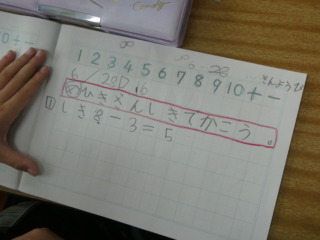 1 2 3 4 5 6 7 8 9 10 + -
6/28
ひきざんしきでかこう。
しき8-3=5